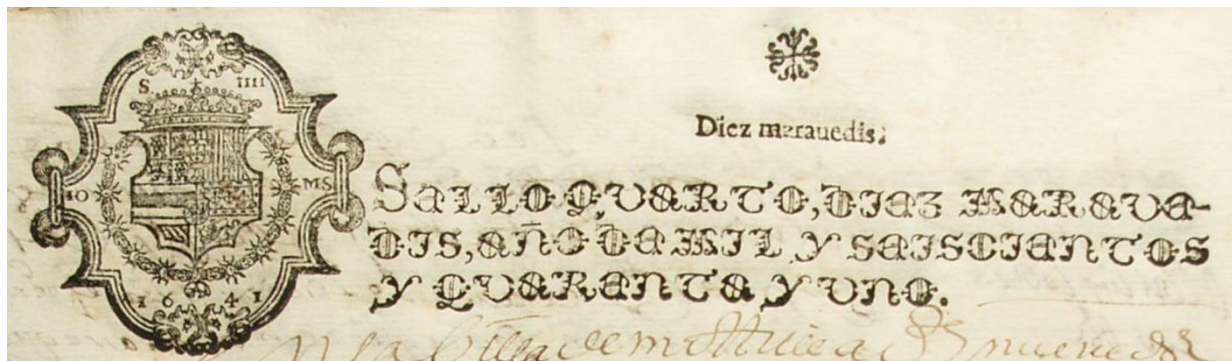 S. IIII
10 MS
1641
Diez marauedis.
SELLO QVARTO, DIEZ MARAVE-
DIS, AÑO DE MIL Y SEISCIENTOS
Y QVARENTA Y VNO.
En la Villa de m